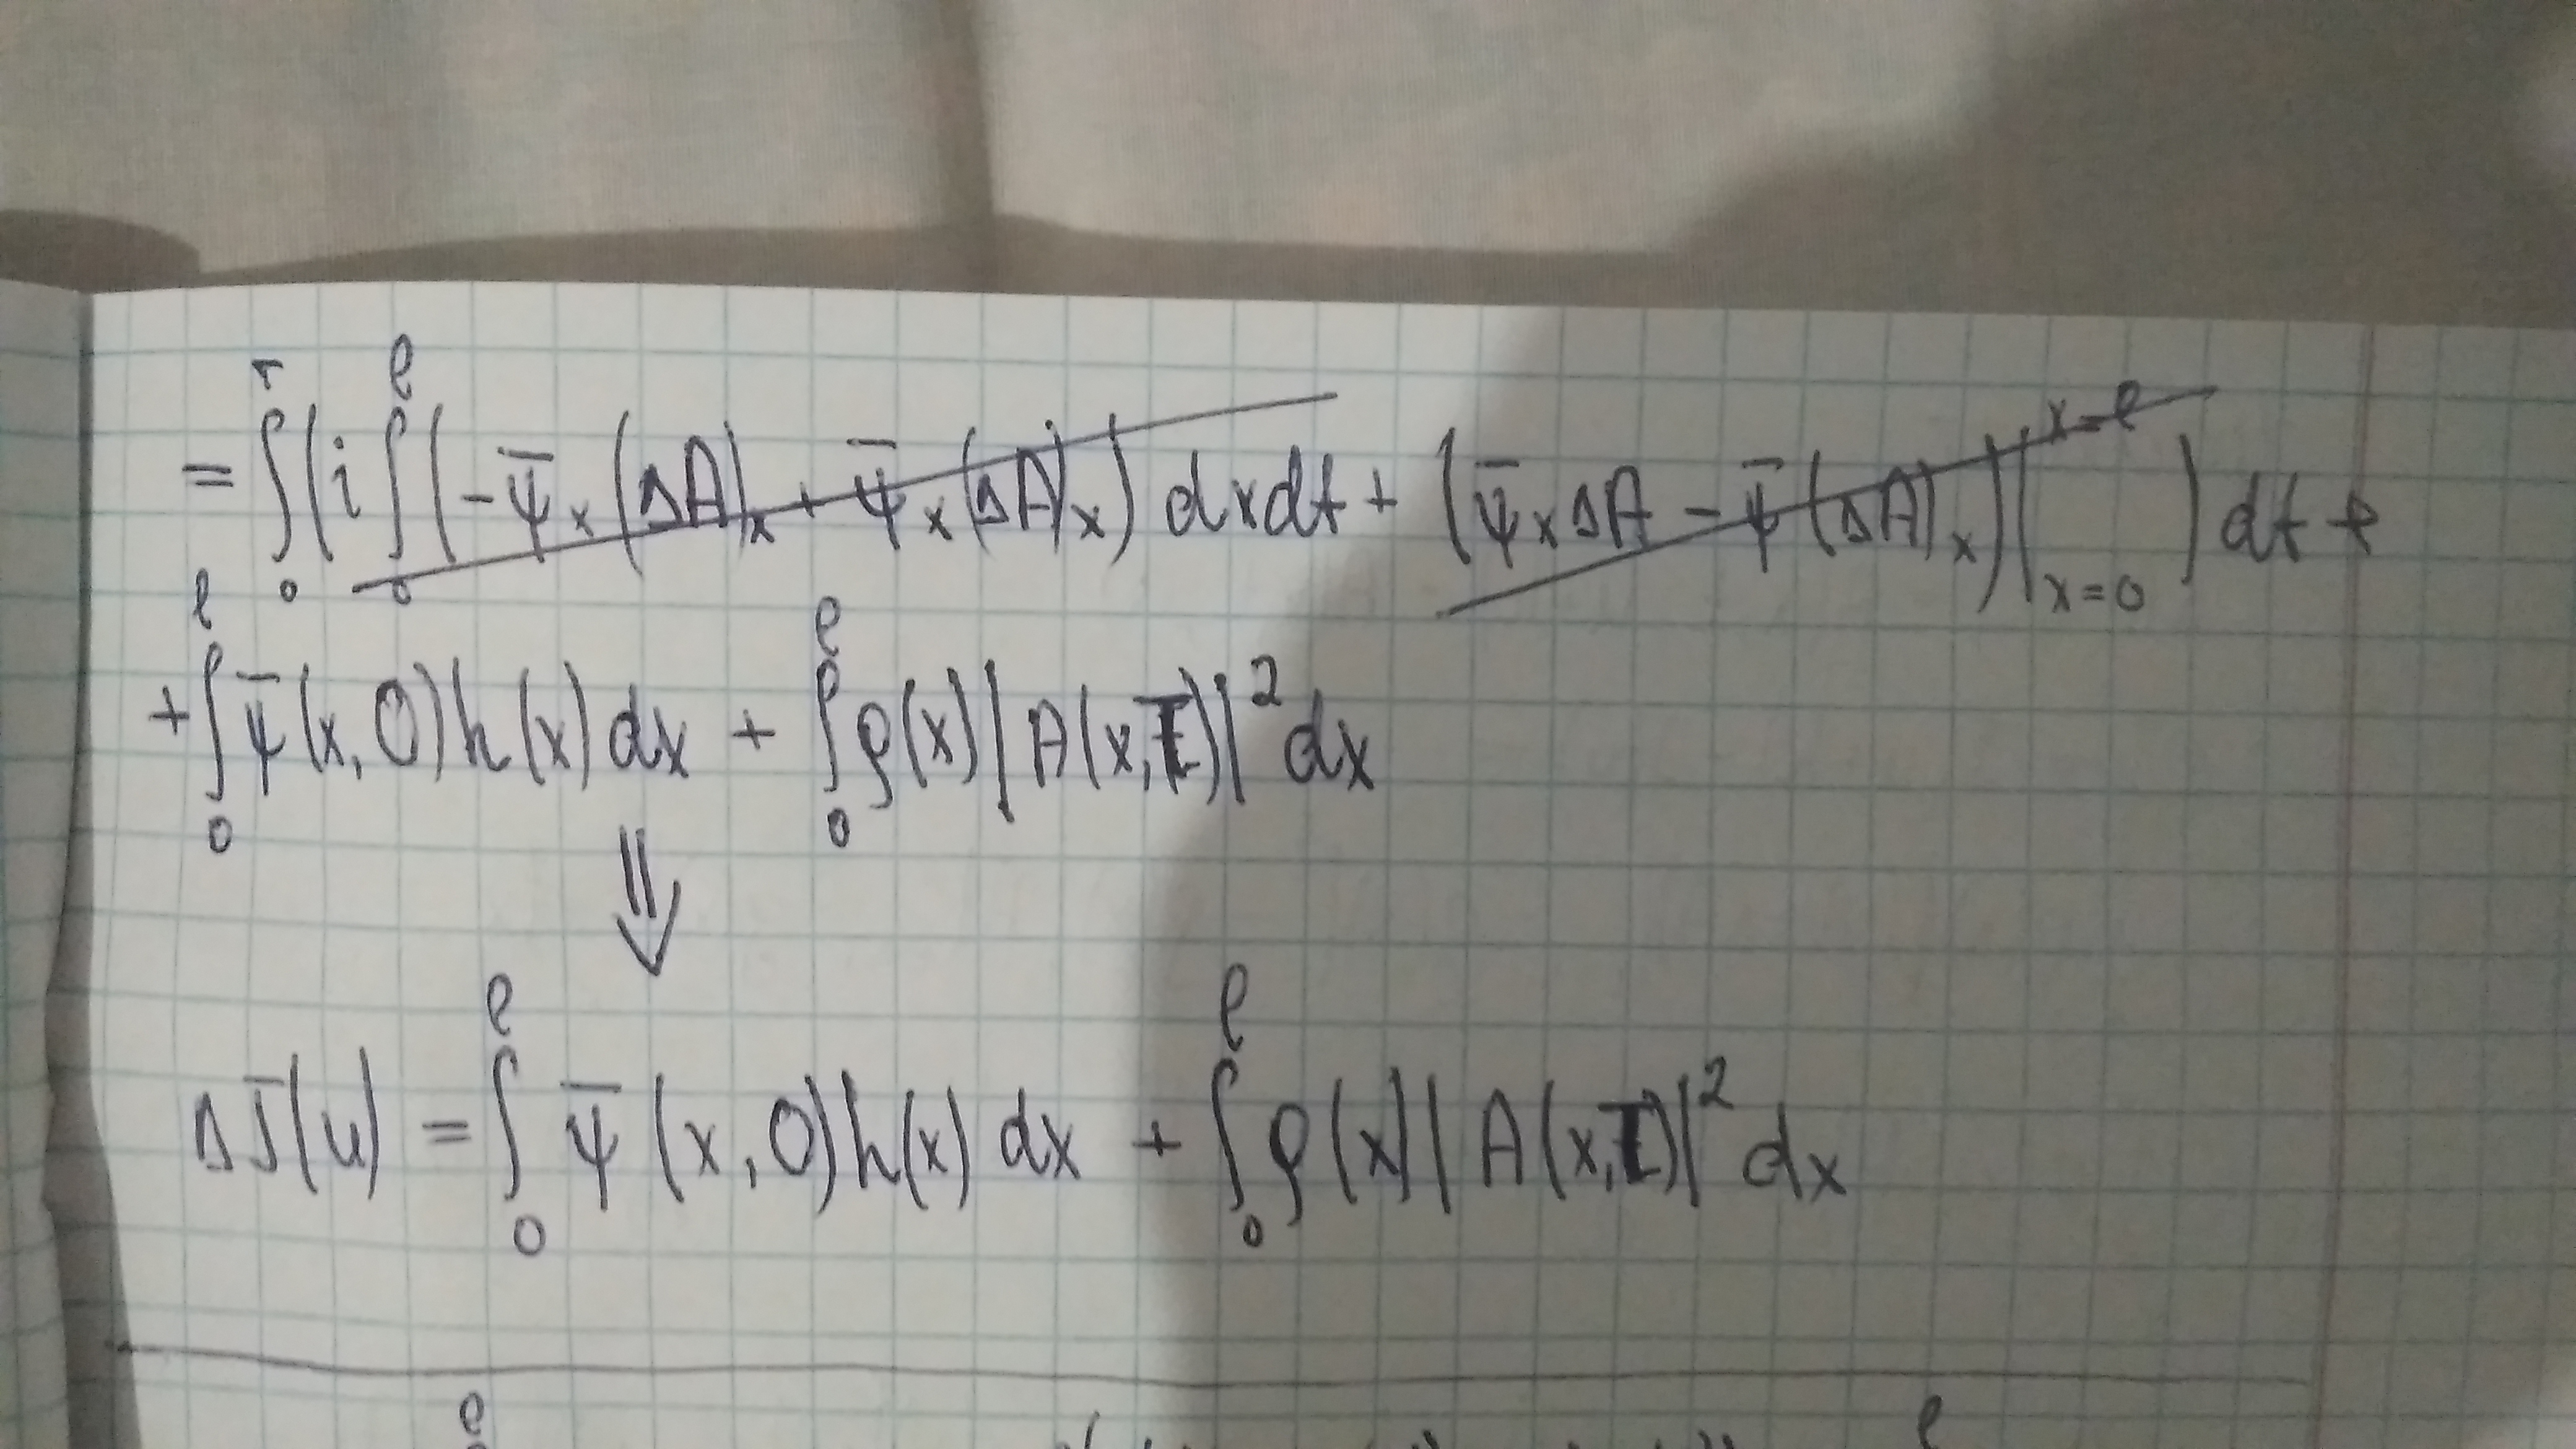 = ∫₀ᵀ (i ∫₀ˡ (-ψ̄ₓ(ΔA)ₓ + ψ̄ₓ(ΔA)ₓ) dxdt + (ψ̄ₓΔA - ψ̄(ΔA)ₓ)|ₓ₌₀ˣ⁼ˡ) dt +
+ ∫₀ˡ ψ̄(x,0)h(x)dx + ∫₀ˡ ρ(x)|A(x,T)|²dx
⇓
ΔJ(u) = ∫₀ˡ ψ̄(x,0)h(x)dx + ∫₀ˡ ρ(x)|A(x,T)|²dx